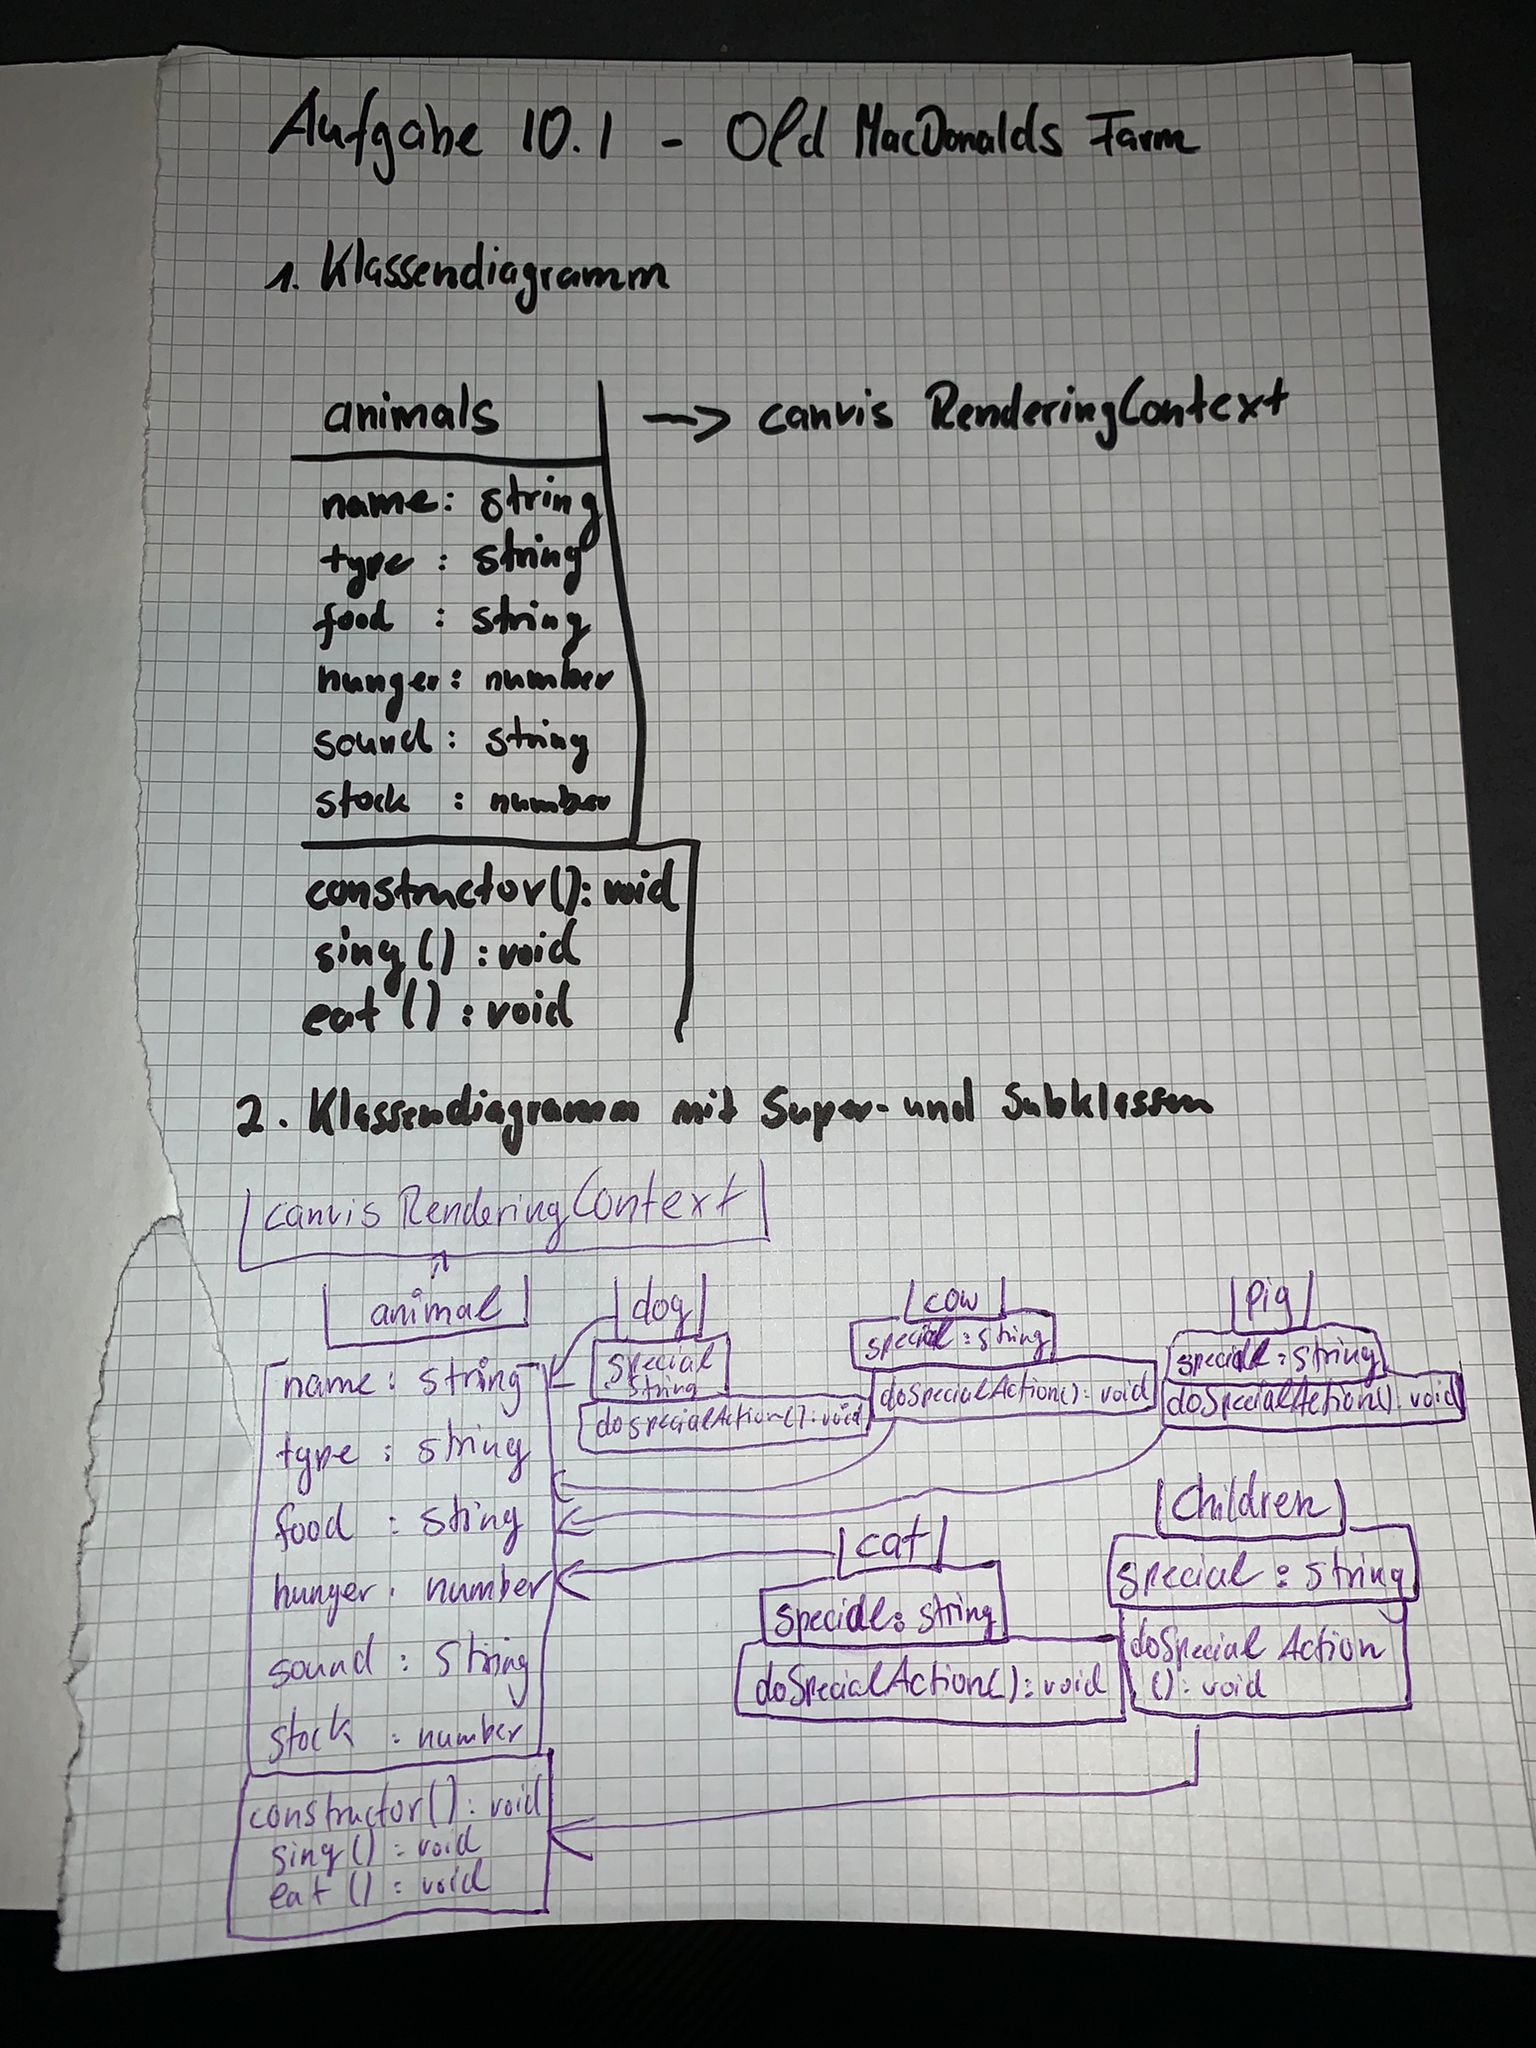 Aufgabe 10.1 - Old MacDonalds Farm
1. Klassendiagramm
animals → canvis RenderingContext
name: string
type : string
food : string
hunger: number
sound : string
stock : number
constructor(): void
sing () : void
eat () : void
2. Klassendiagramm mit Super- und Subklassen
canvis RenderingContext
animal
name : string
type : string
food : string
hunger : number
sound : string
stock : number
constructor() : void
sing () : void
eat () : void
dog
special
string
doSpecialAction() : void
cow
special : string
doSpecialAction() : void
pig
special : string
doSpecialAction() : void
cat
special : string
doSpecialAction() : void
Children
special : string
doSpecial Action
() : void